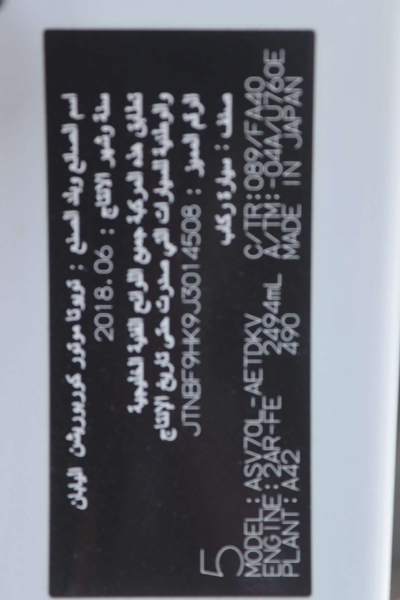 اسم الصانع وبلد الصنع : تويوتا موتور كوربوريشن اليابان
سنة وشهر الإنتاج : 2018.06
تطابق هذه المركبة جميع اللوائح الفنية الخليجية
والوطنية للسيارات التي صدرت حتى تاريخ الإنتاج
الرقم المميز : JTNBF9HK9J3014508
صنف : سيارة ركاب
5
MODEL : ASV70L-AETDKV C/TR : 089/FA40
ENGINE : 2AR-FE 2494mL A/TM : -04A/U760E
PLANT : A42 490 MADE IN JAPAN